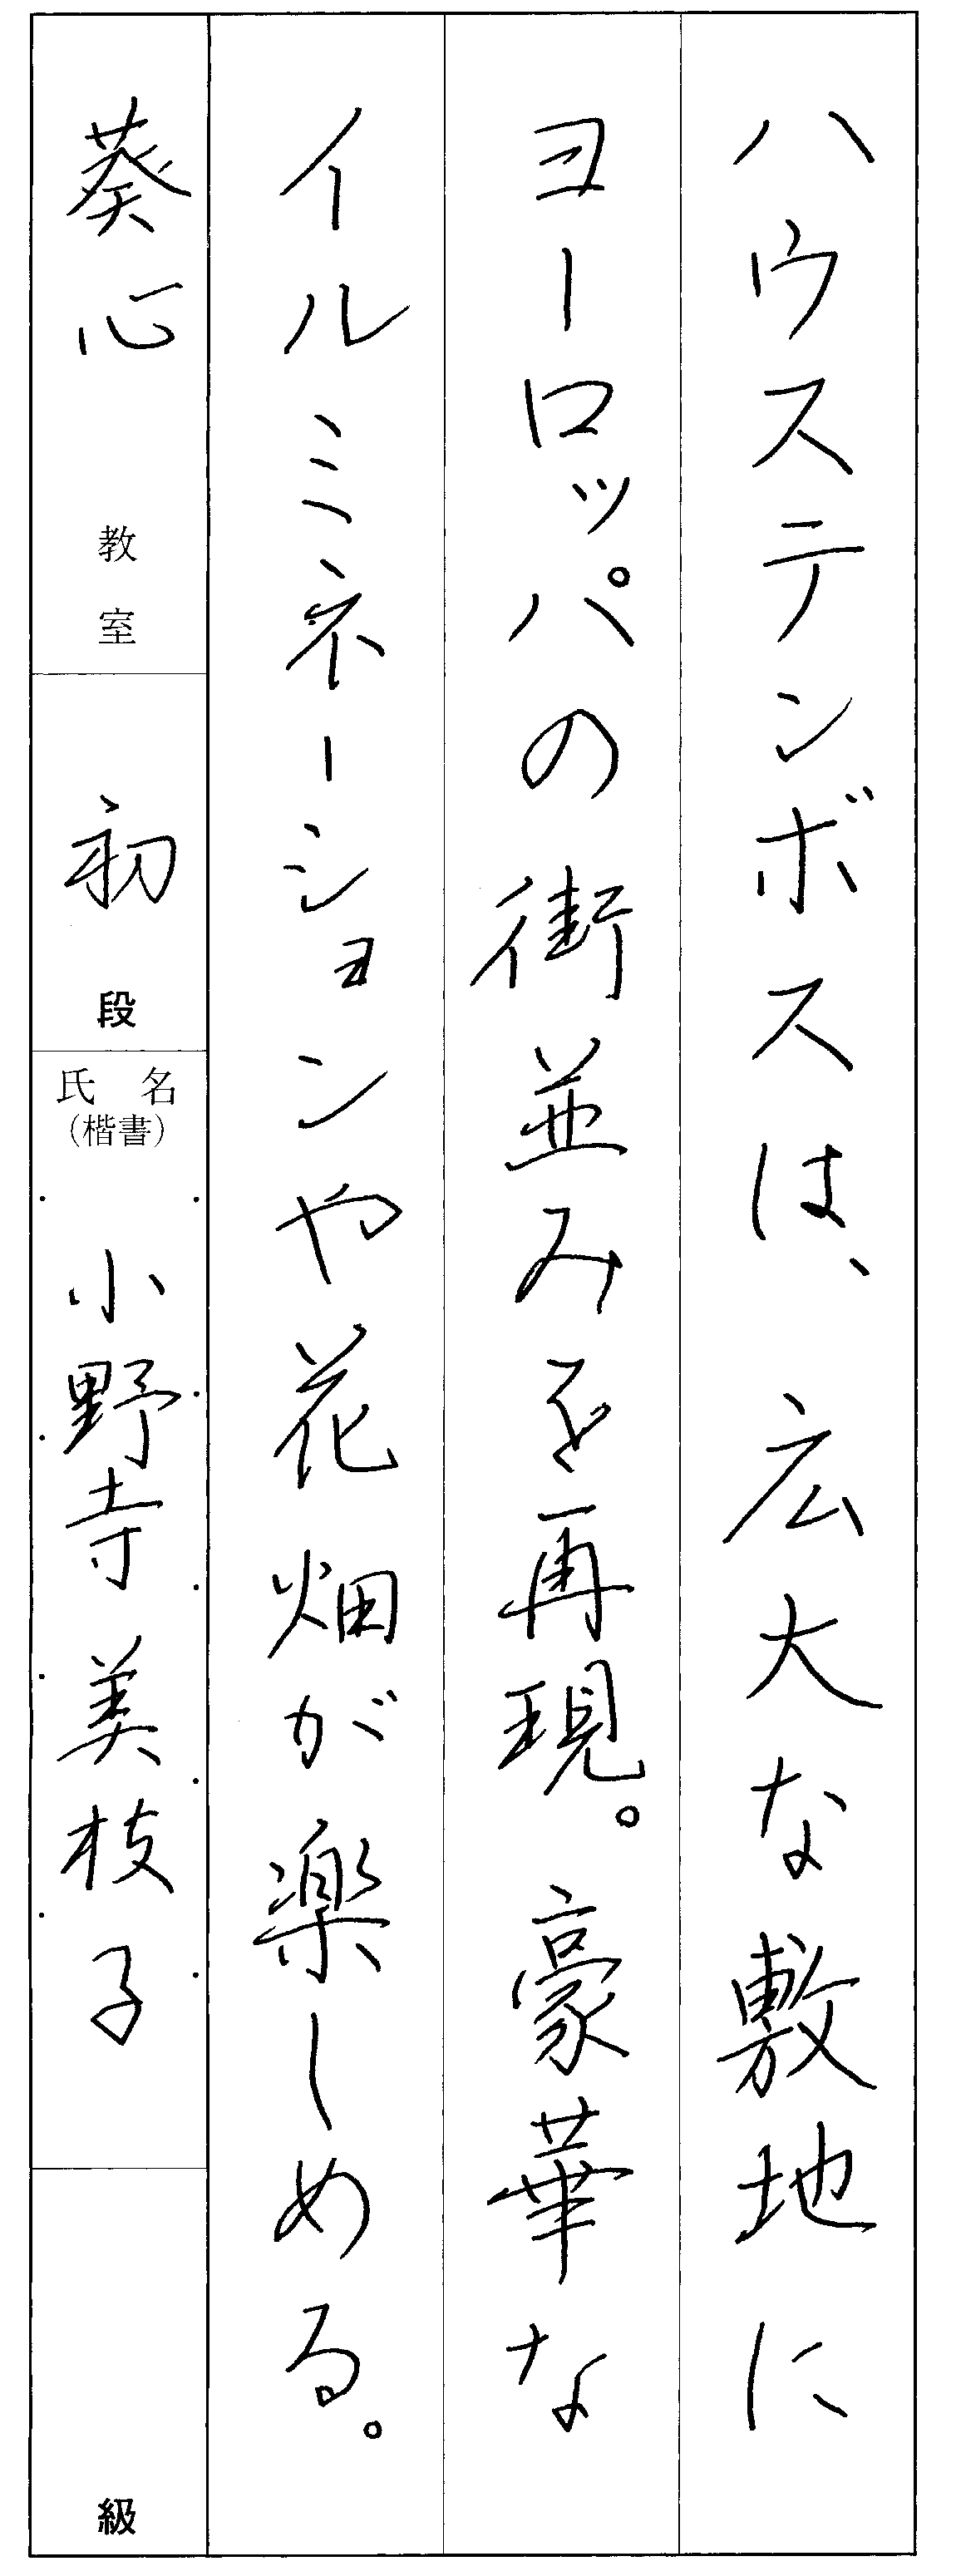 ハウステンボスは、広大な敷地に
ヨーロッパの街並みを再現。豪華な
イルミネーションや花畑が楽しめる。
葵心 教室
初 段
氏名
(楷書)
小野寺美枝子
級